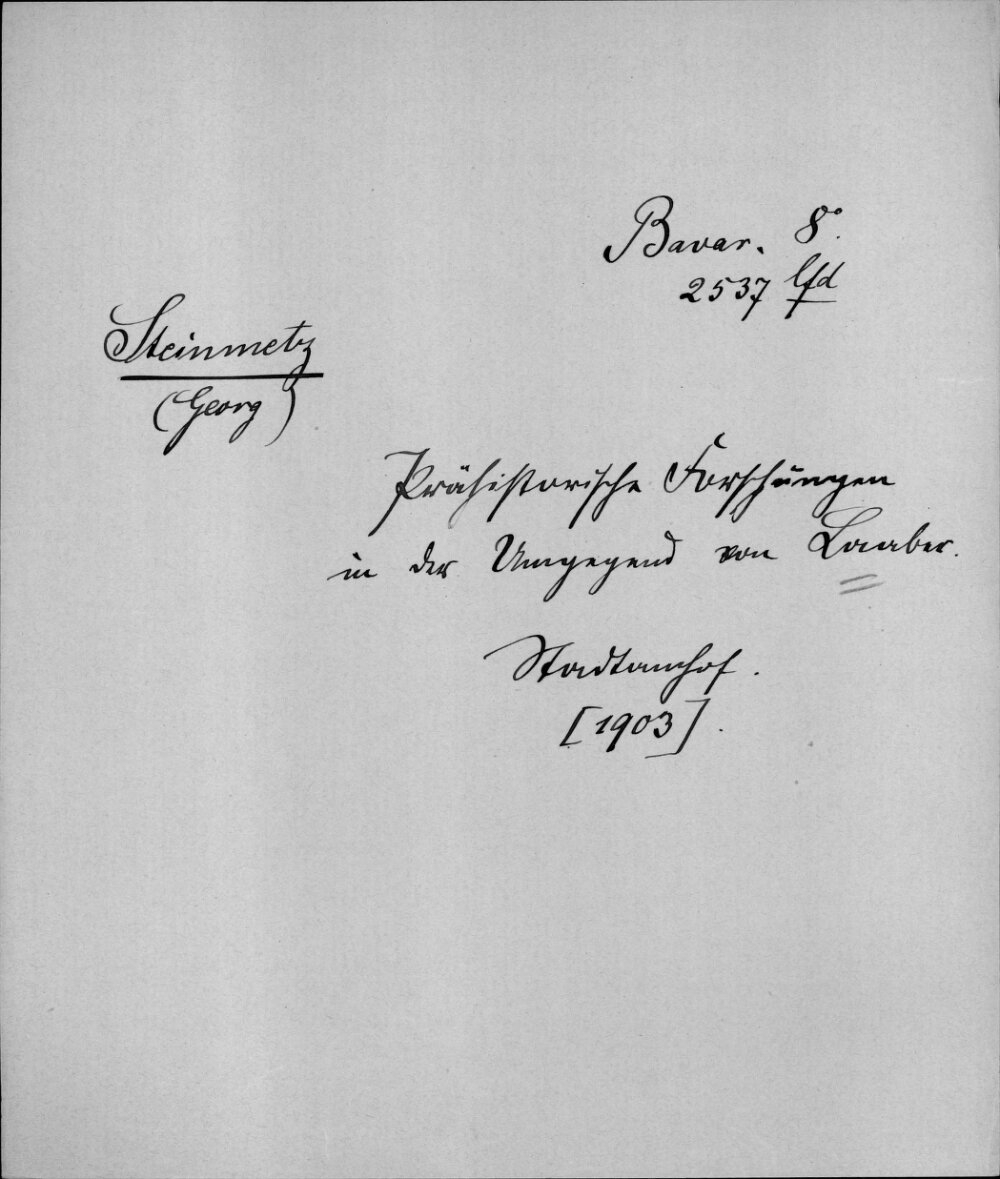 Bavar. 8°.
2537 lfd
Steinmetz
(Georg)
Prähistorische Forschungen
in der Umgegend von Laaber.
Stadtamhof.
[1903].